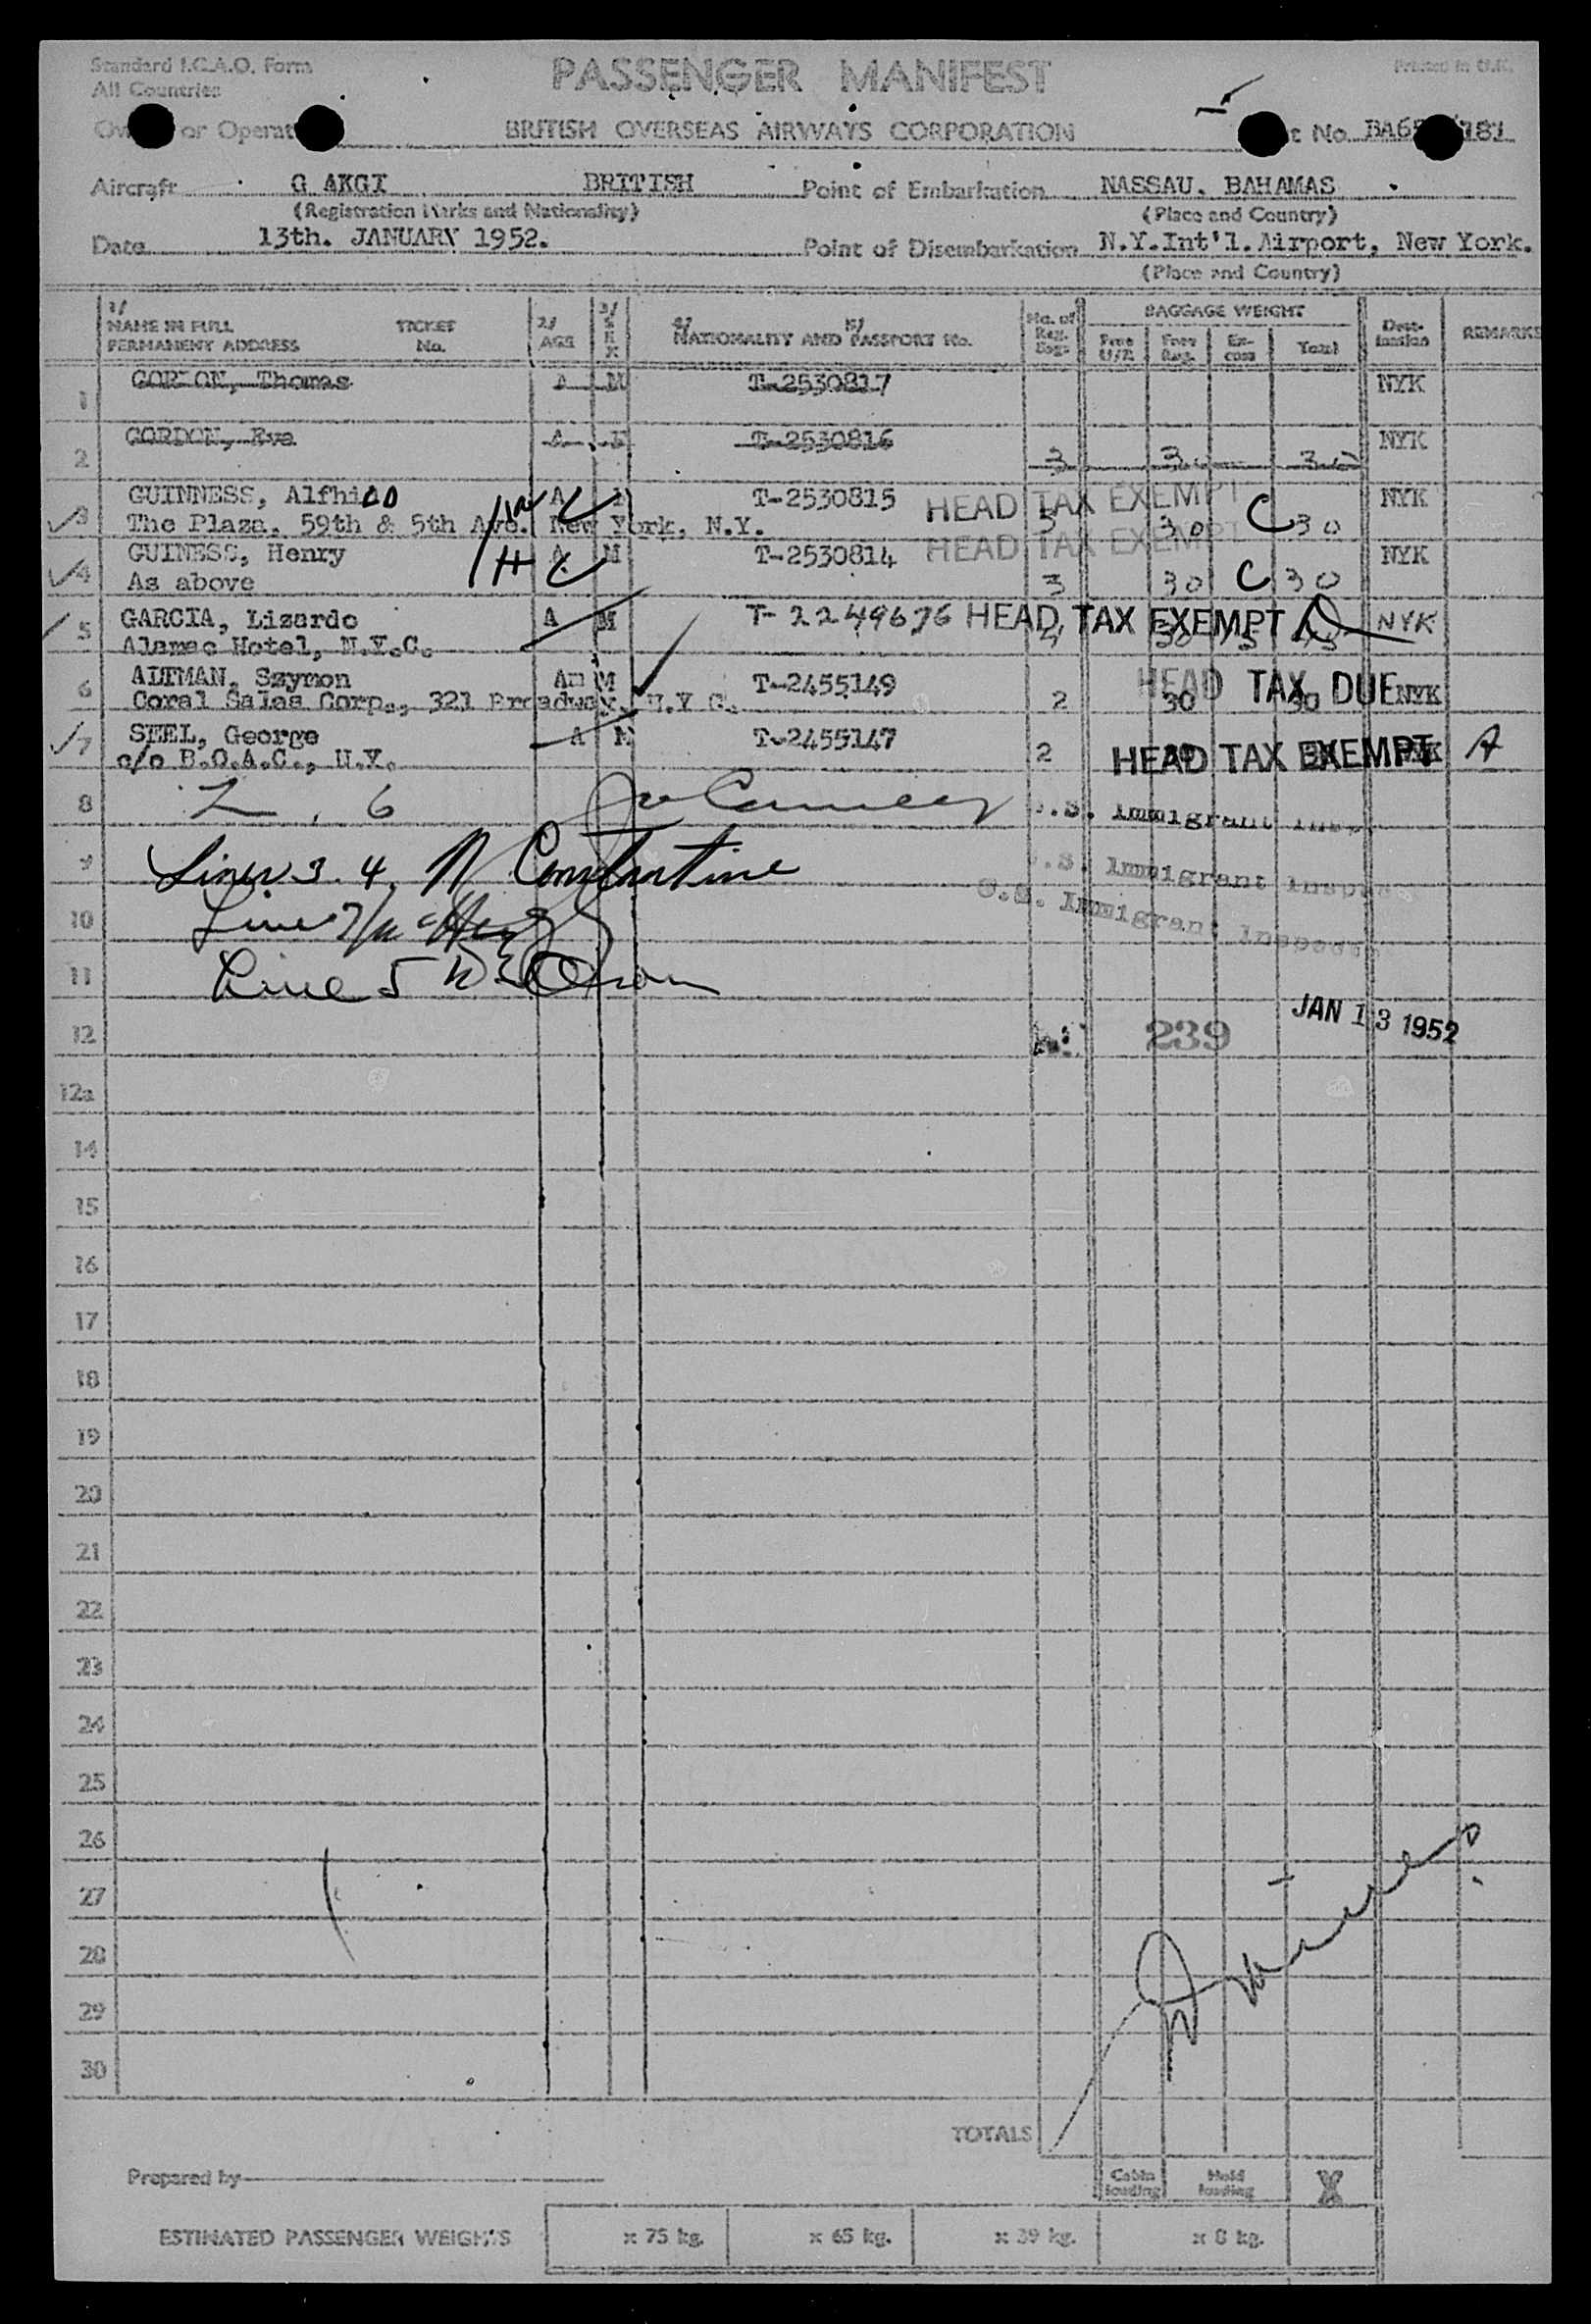 Standard I.C.A.O. Form
All Countries
PASSENGER MANIFEST
Printed in U.K.
or
BRITISH OVERSEAS AIRWAYS CORPORATION
No. 181
Aircraft G AKGI BRITISH Point of Embarkation NASSAU. BAHAMAS
(Registration Marks and Nationality) (Place and Country)
Date 13th. JANUARY 1952. Point of Disembarkation N.Y.Int'l.Airport, New York.
(Place and Country)
1/ NAME IN FULL PERMANENT ADDRESS TICKET No. 2/ AGE 3/ SEX 4/ 5/ NATIONALITY AND PASSPORT No. No. of Reg. Bags BAGGAGE WEIGHT Free U/R Free Reg. Ex-cess Total Dest-ination REMARKS
1 GORDON, Thomas A M T-2530817 NYK
2 GORDON, Eva A F T-2530816 3 30 30 NYK
3 GUINNESS, Alfhild A T-2530815 HEAD TAX EXEMPT NYK
The Plaza, 59th & 5th Ave. New York, N.Y. 3 30 C 30
4 GUINESS, Henry A M T-2530814 HEAD TAX EXEMPT NYK
As above 3 30 C 30
5 GARCIA, Lizardo A M T-2249676 HEAD TAX EXEMPT NYK
Alamac Hotel, N.Y.C.
6 ALTMAN, Szymon M T-2455149 HEAD TAX DUE NYK
Coral Sales Corp., 321 Broadway, N.Y.C. 2 30 30
7 STEL, George A M T-2455147
c/o B.O.A.C., N.Y. 2 HEAD TAX EXEMPT A
8 2, 6 U.S. Immigrant
9 Lines 3. 4, N Constantine U.S. Immigrant Inspector
10 Line 7 U.S. Immigrant Inspector
11 Line 5
12 239 JAN 13 1952
12a
14
15
16
17
18
19
20
21
22
23
24
25
26
27
28
29
30
TOTALS
Prepared by Cabin loading Hold loading X
ESTIMATED PASSENGER WEIGHTS x 75 kg. x 65 kg. x 39 kg. x 8 kg.